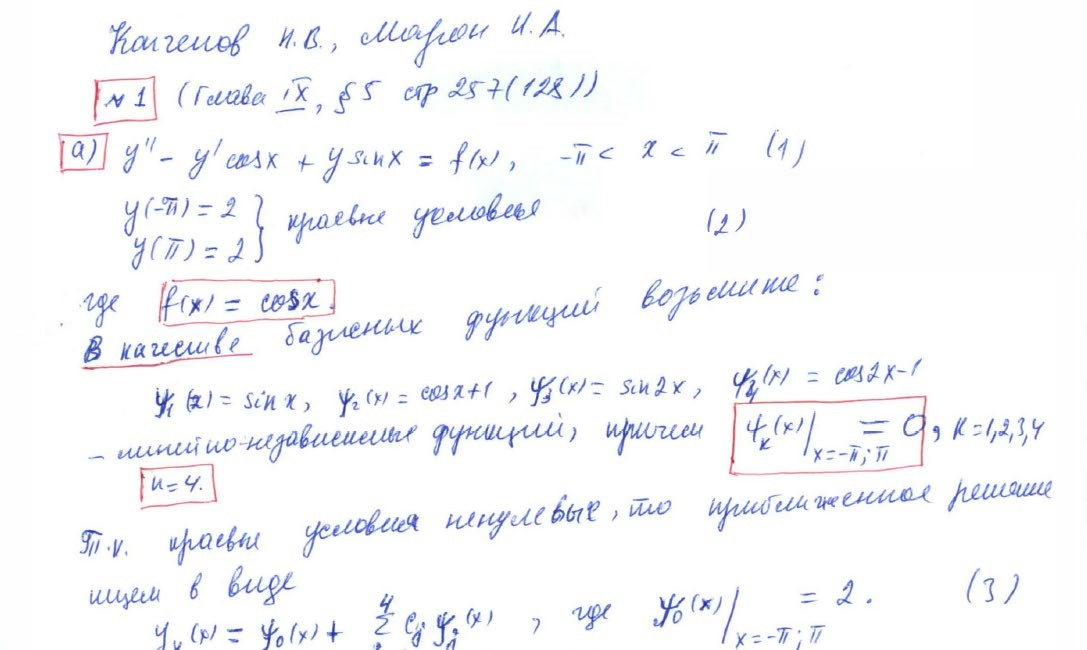 Копченов Н.В., Марон И.А.
№1 (Глава IX, §5 стр 257(128))
а) y'' - y' cosx + y sinx = f(x), -π < x < π (1)
y(-π) = 2
y(π) = 2 } краевые условия (2)
где f(x) = cosx.
В качестве базисных функций возьмите:
ψ₁(x) = sin x, ψ₂(x) = cosx+1, ψ₃(x) = sin2x, ψ₄(x) = cos2x-1
– линейно-независимые функций, причем ψₖ(x)|ₓ₌₋π;π = 0, k=1,2,3,4
n=4.
Т.к. краевые условия ненулевых, то приближенное решение
ищем в виде
yₙ(x) = ψ₀(x) + Σ⁴ Cⱼ ψⱼ(x), где ψ₀(x)|ₓ₌₋π;π = 2. (3)